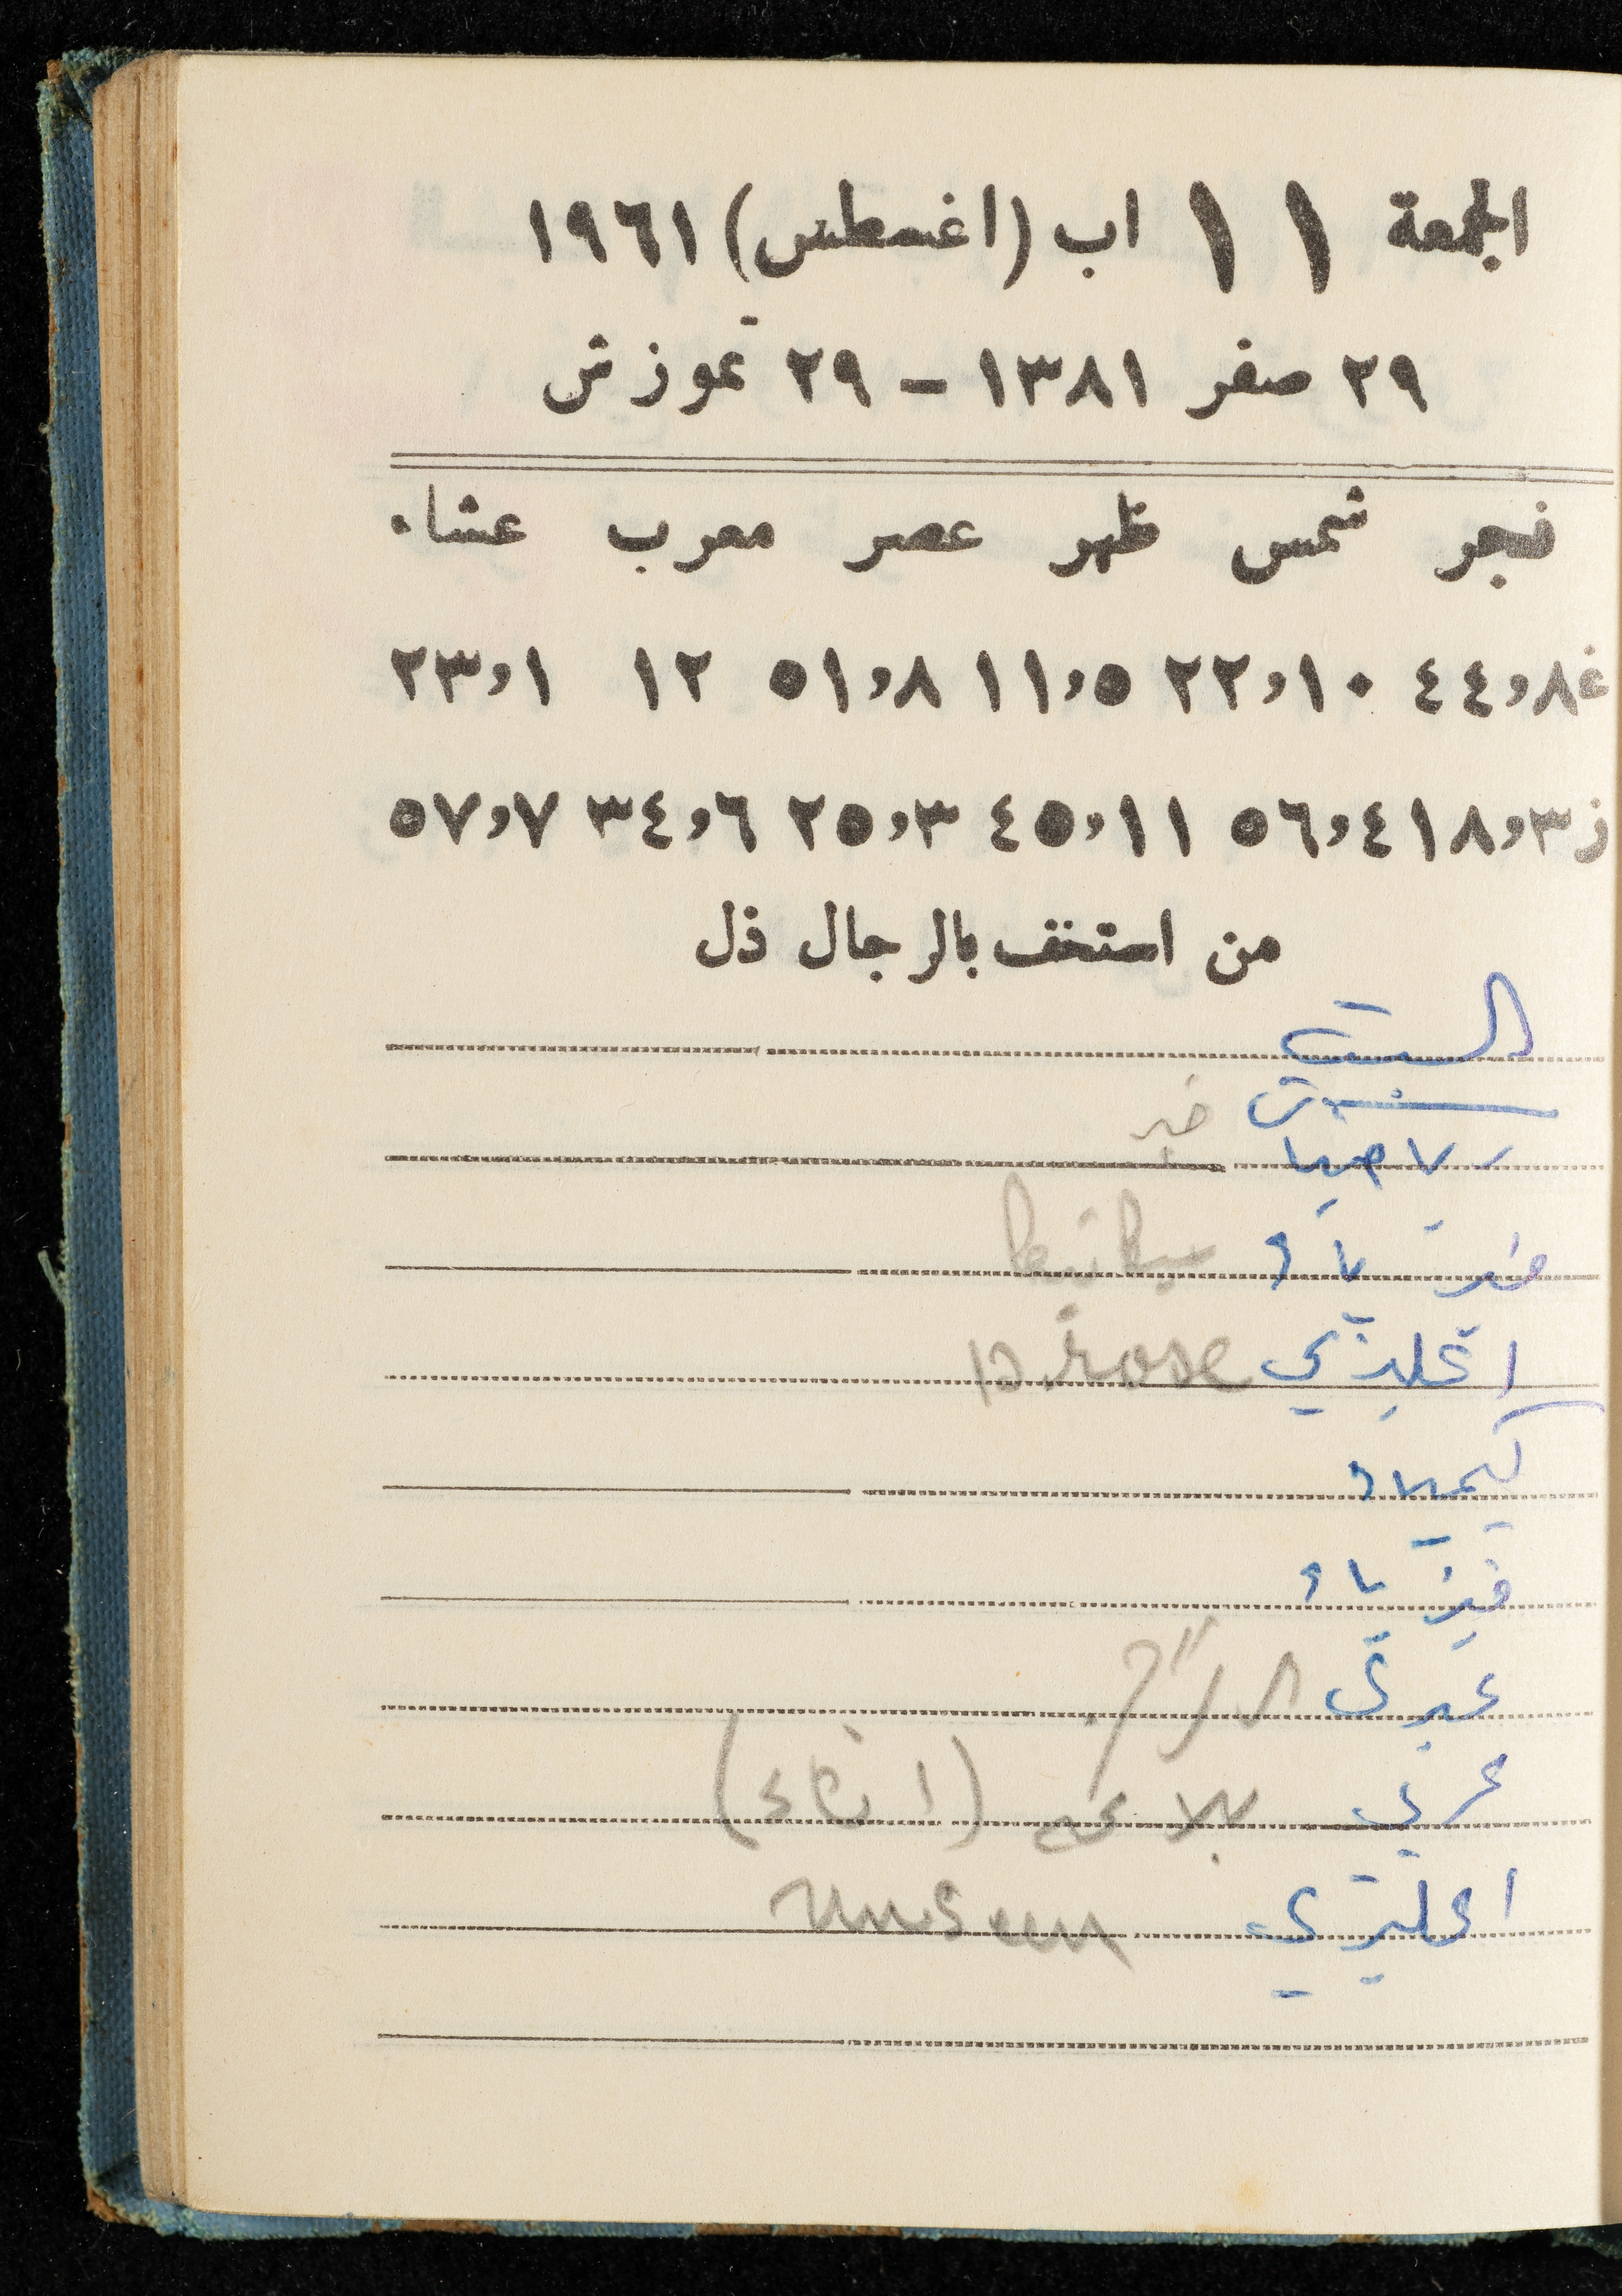 الجمعة ١١ اب (اغسطس) ١٩٦١
٢٩ صفر ١٣٨١ - ٢٩ تموز ش
فجر شمس ظهر عصر مغرب عشاء
غ ٨,٤٤ ١٠,٢٢ ٥,١١ ٨,٥١ ١٢ ١,٢٣
ز ٣,١٨ ٤,٥٦ ١١,٤٥ ٣,٢٥ ٦,٣٤ ٧,٥٧
من استخف بالرجال ذل
السبت
رياضيات جبر
فيزياء
انجليزي prose
كيمياء
فيزياء
عبري
عربي بلاغه (انشاء)
انجليزي unseen